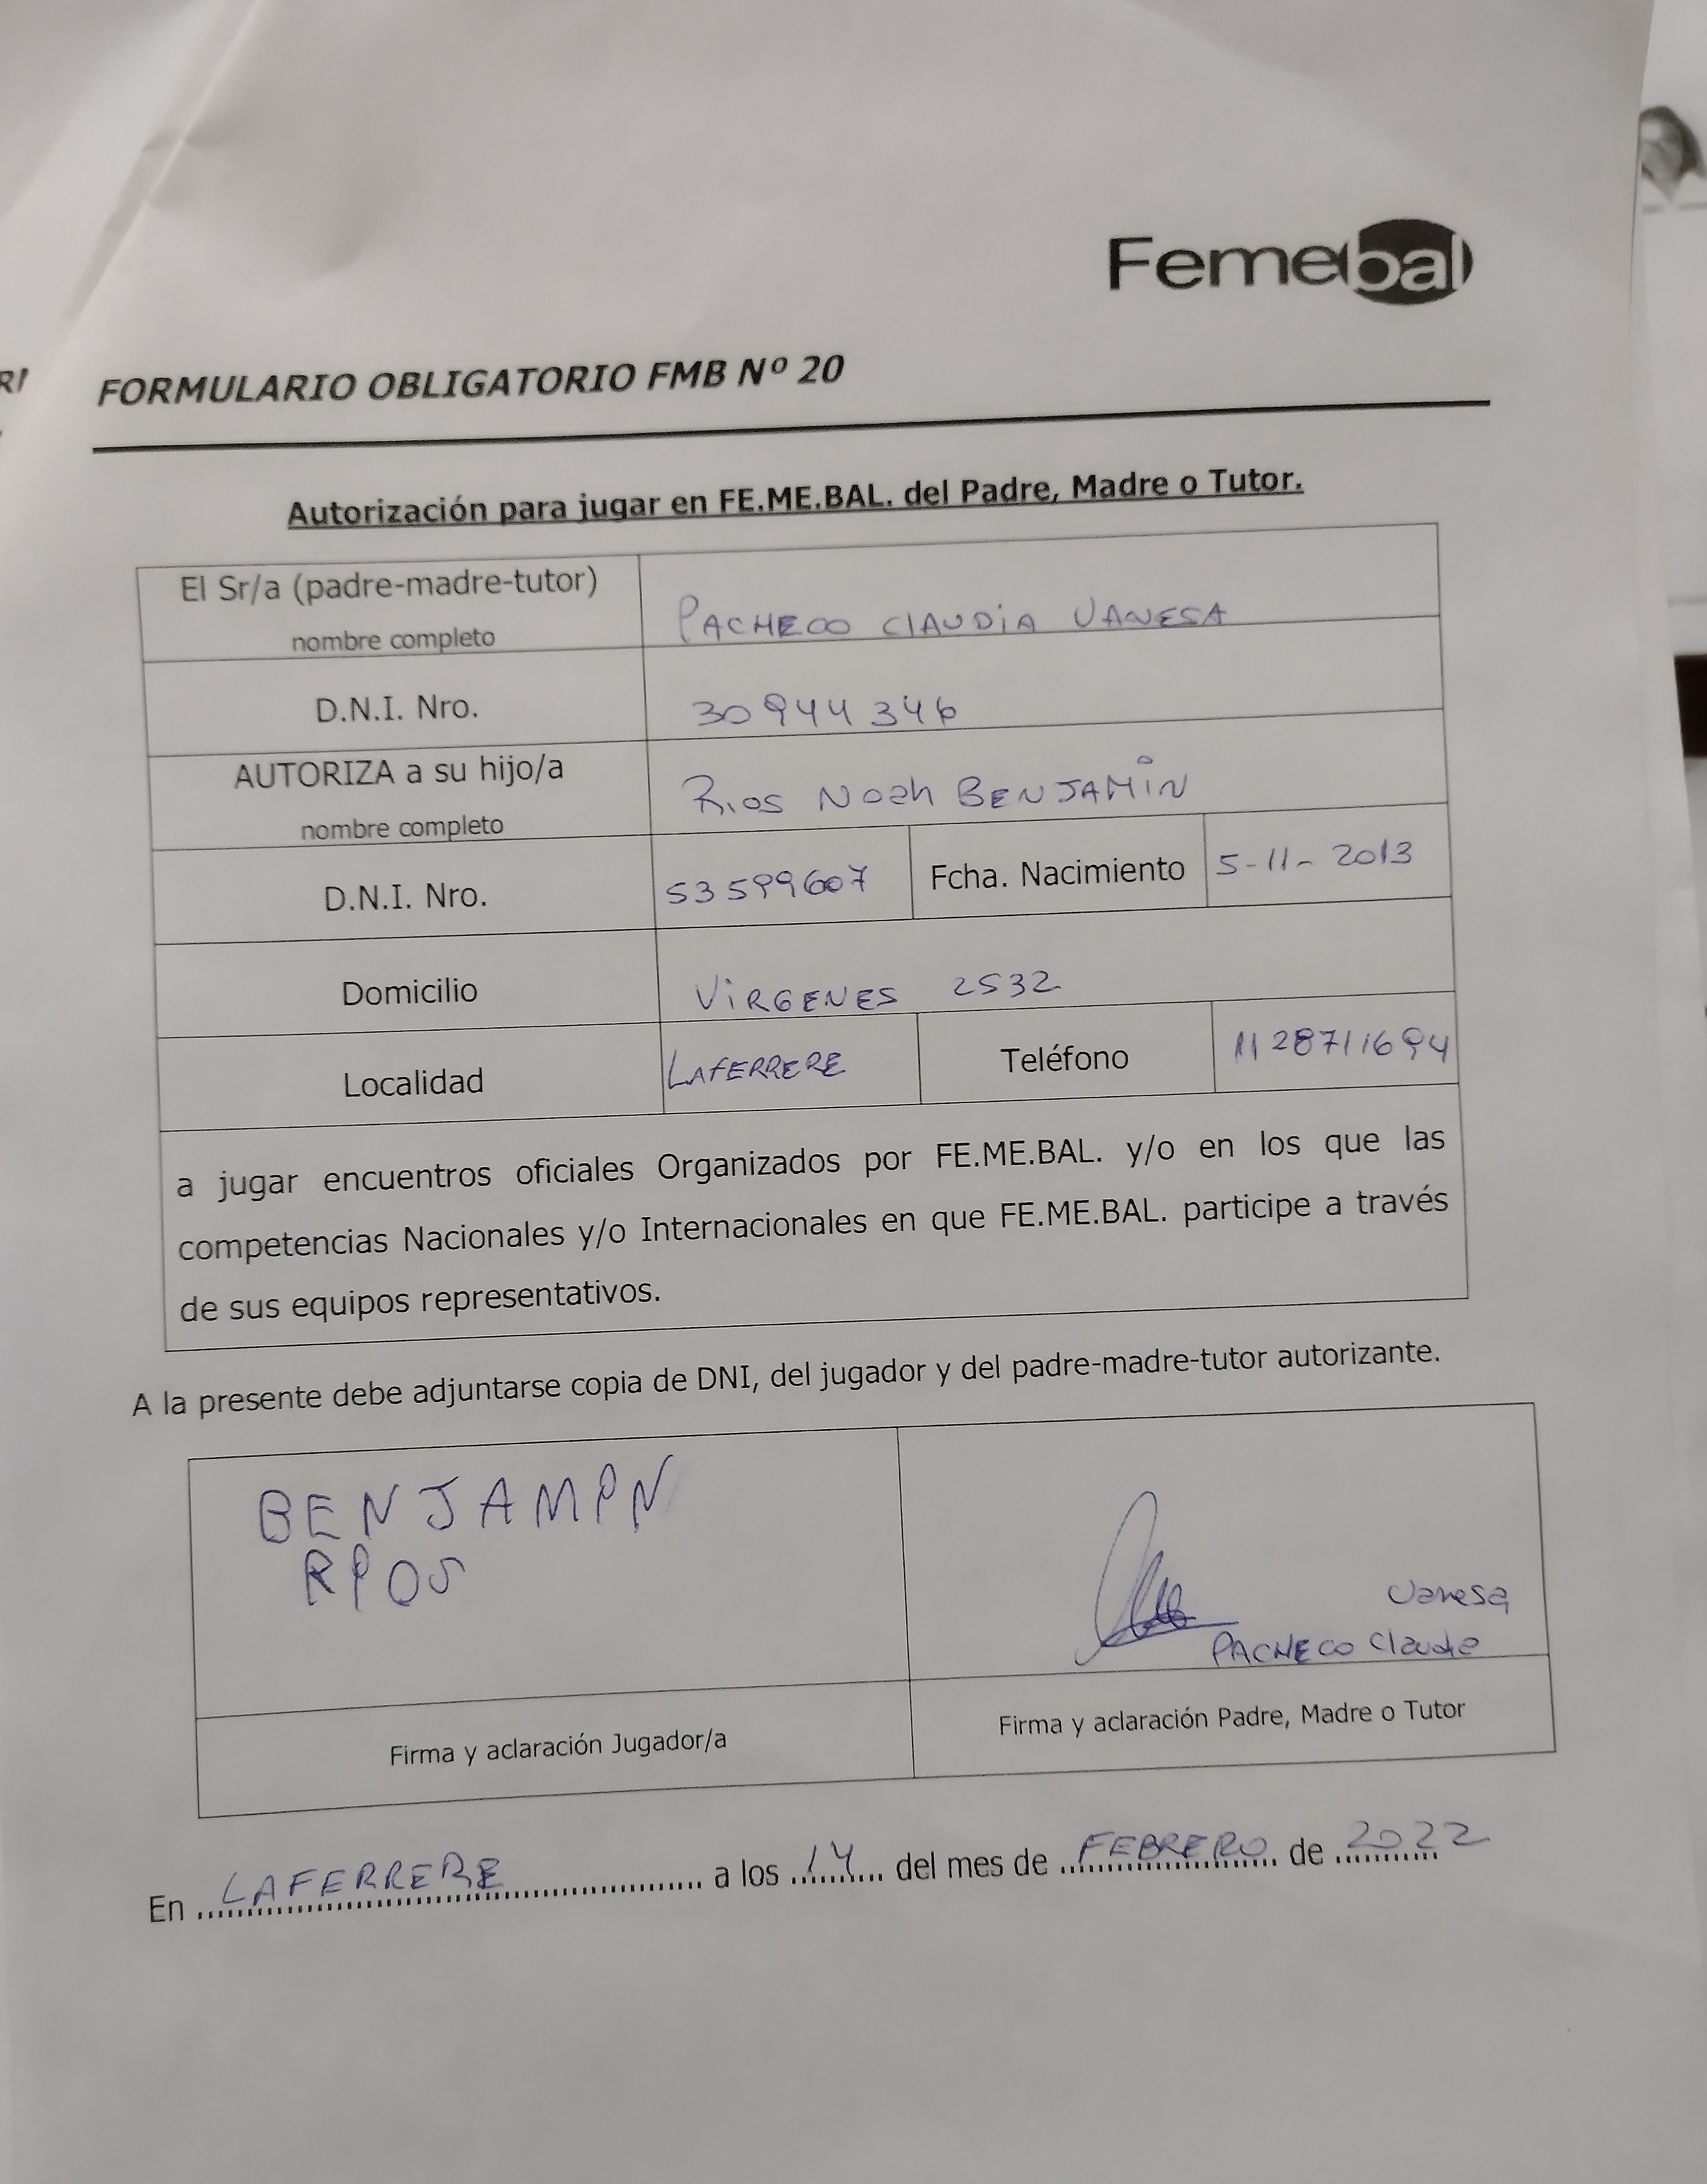 Femebal
RI
FORMULARIO OBLIGATORIO FMB Nº 20
Autorización para jugar en FE.ME.BAL. del Padre, Madre o Tutor.
El Sr/a (padre-madre-tutor)
nombre completo
PACHECO CLAUDIA VANESA
D.N.I. Nro.
30944346
AUTORIZA a su hijo/a
nombre completo
Rios Noah BENJAMíN
D.N.I. Nro.
53599607
Fcha. Nacimiento
5-11-2013
Domicilio
VIRGENES 2532
Localidad
LAFERRERE
Teléfono
1128711694
a jugar encuentros oficiales Organizados por FE.ME.BAL. y/o en los que las
competencias Nacionales y/o Internacionales en que FE.ME.BAL. participe a través
de sus equipos representativos.
A la presente debe adjuntarse copia de DNI, del jugador y del padre-madre-tutor autorizante.
BENJAMIN
RIOS
Vanesa
PACHECO Claudia
Firma y aclaración Jugador/a
Firma y aclaración Padre, Madre o Tutor
En LAFERRERE a los 14 del mes de FEBRERO de 2022